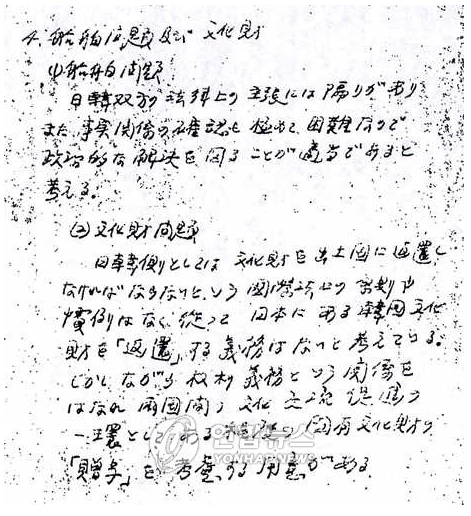 4. 船舶問題及び文化財
(1) 船舶問題
日韓双方の法律上の主張には隔りがあり
また、事実関係の確認も極めて困難なので
政治的な解決を図ることが適当であると
考える。
(2) 文化財問題
日韓側としては文化財を出土国に返還し
なければならないという国際法上の原則や
慣例はなく、従って日本にある韓国文化
財を「返還」する義務はないと考えている。
しかしながら権利義務という関係を
はなれ両国間の文化交流促進の
一環としてある種の国有文化財の
「贈与」を考慮する用意がある
연합뉴스
YONHAPNEWS